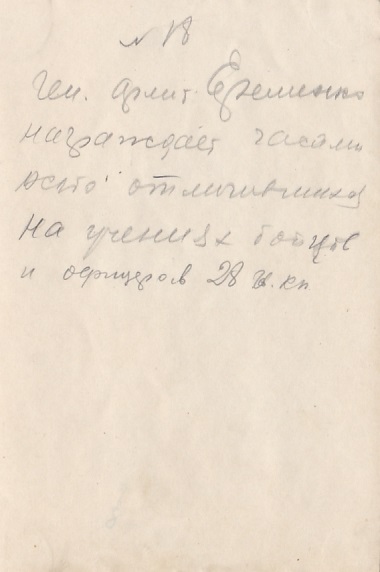 N 18
Ген. армии Еременко
награждает часами
отличившихся
на учениях бойцов
и офицеров 28 гв. кп